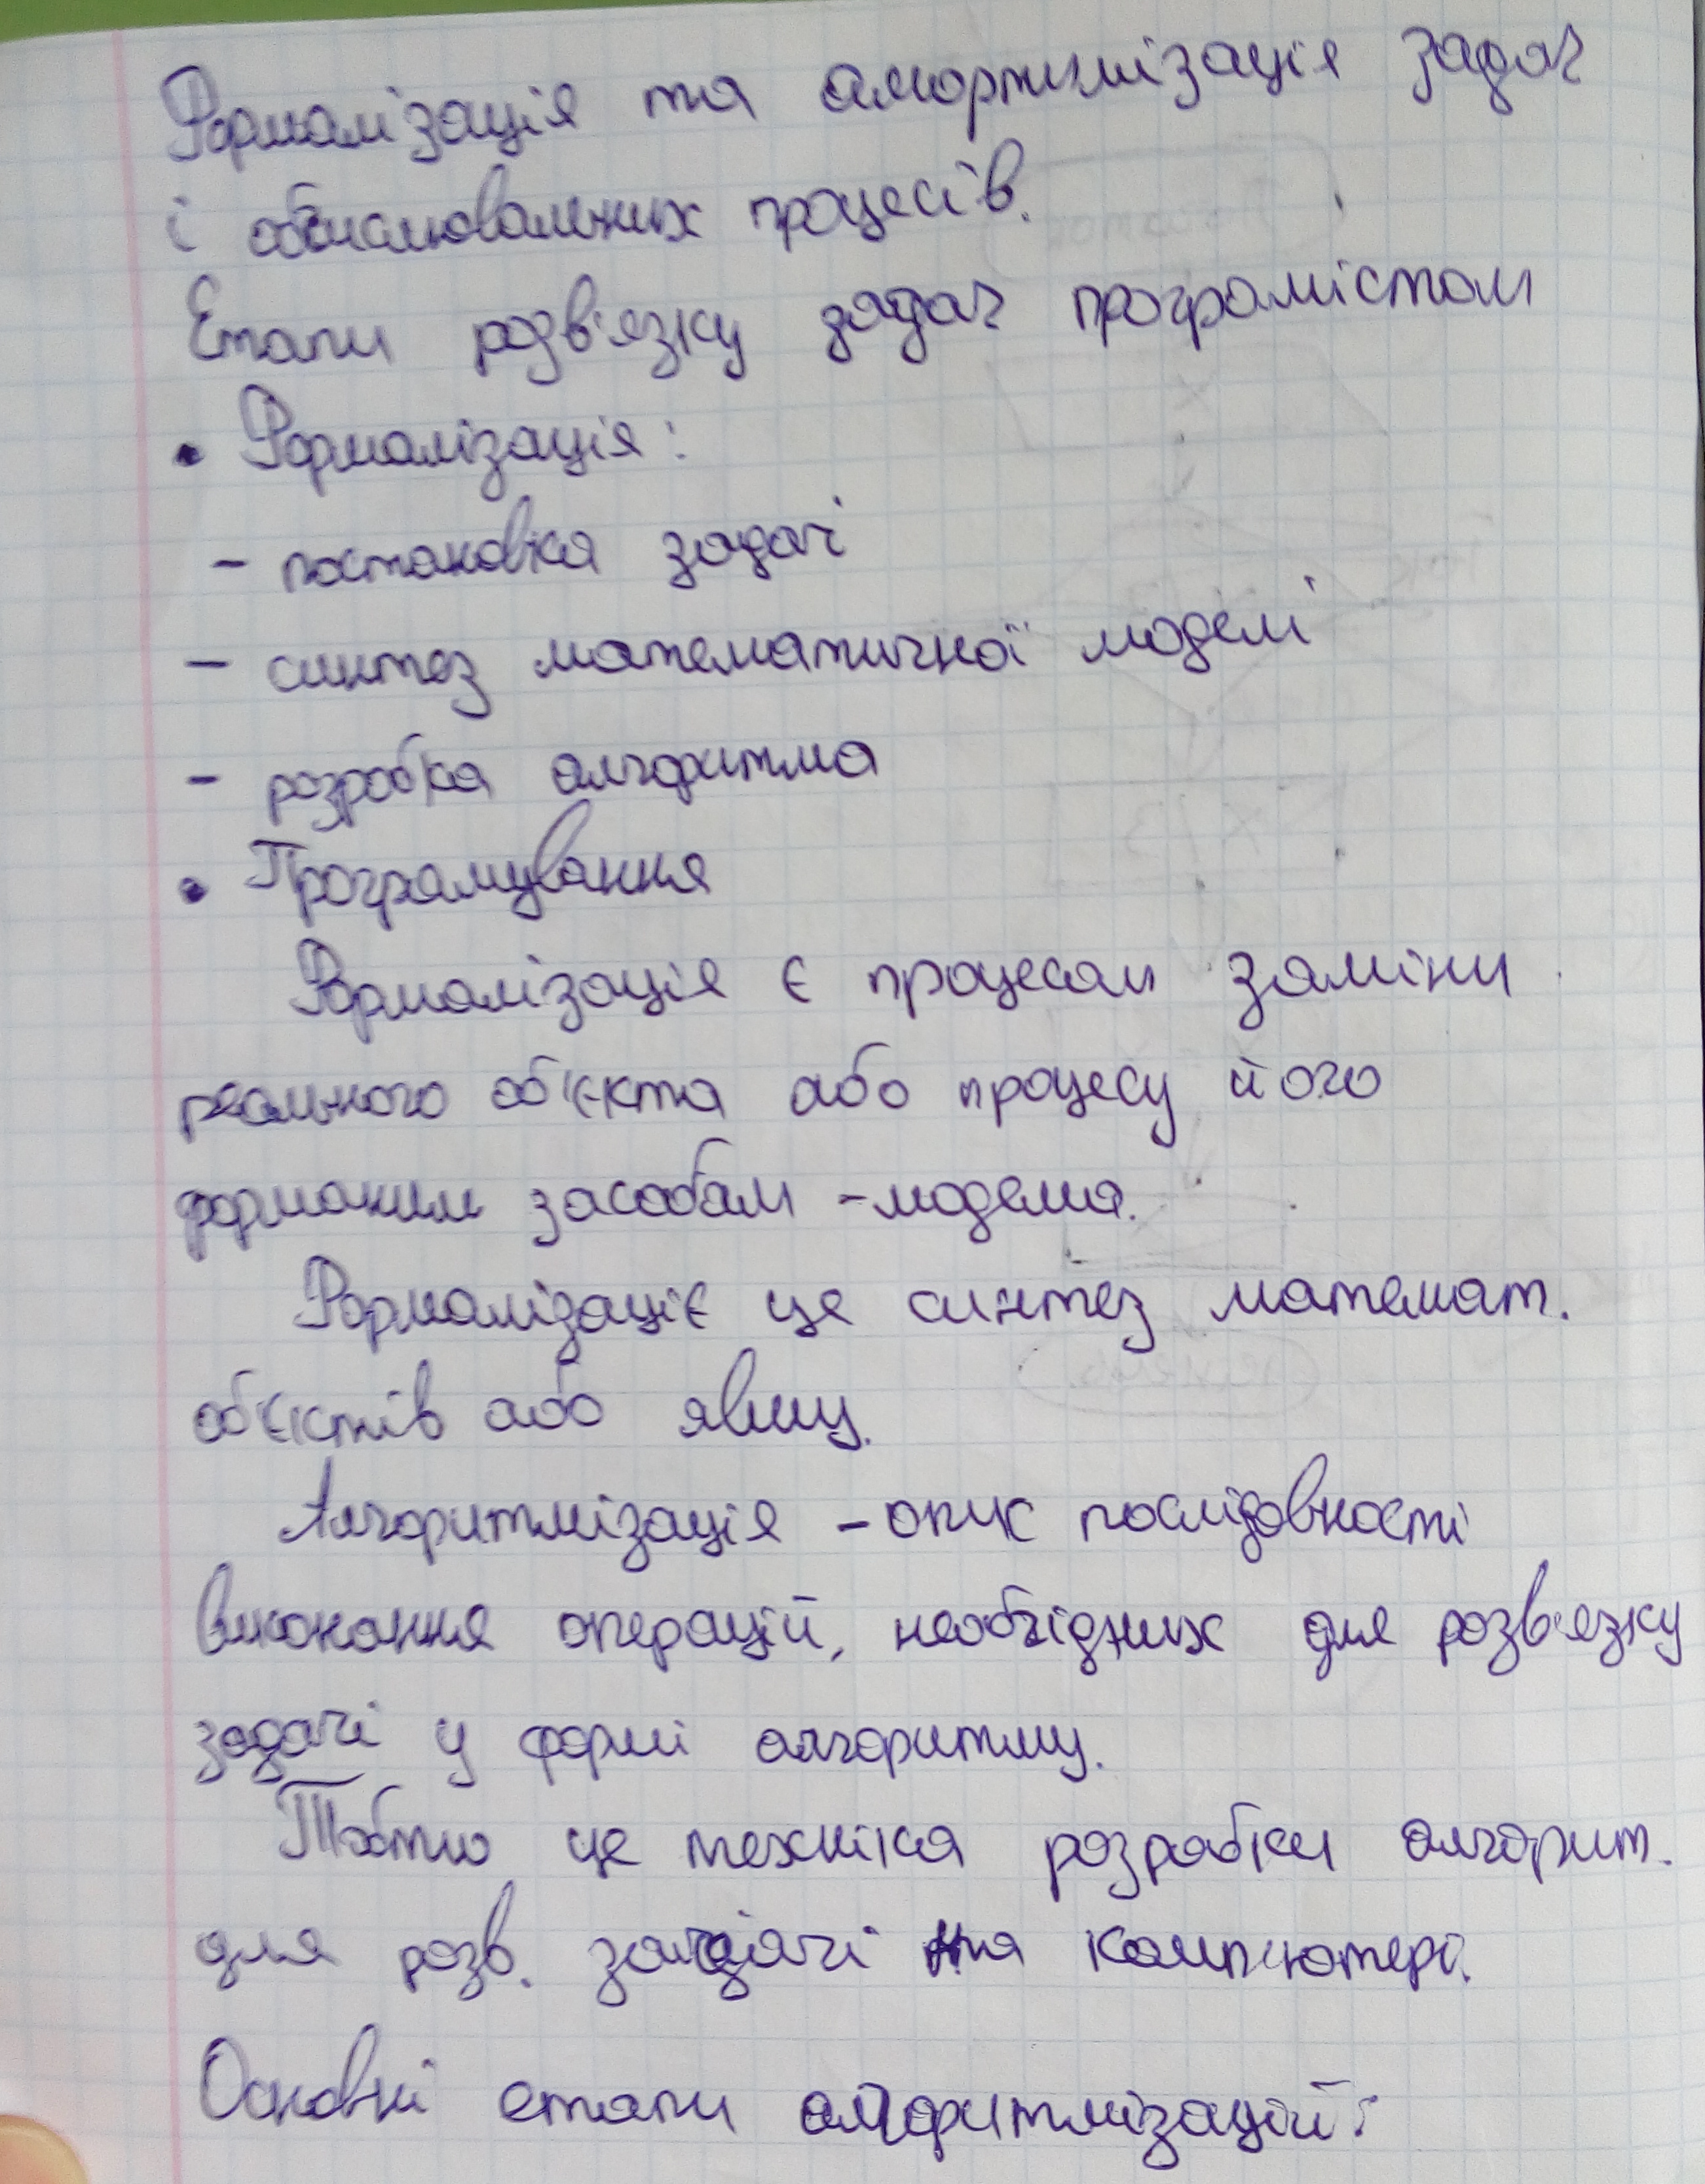 Формалізація та алгоритмізація задач
і обчислювальних процесів.
Етапи розв'язку задач програмістом
• Формалізація:
- постановка задачі
- синтез математичної моделі
- розробка алгоритма
• Програмування
Формалізація є процесом заміни
реального об'єкта або процесу його
форманим засобам - моделя.
Формалізаціє це синтез математ.
об'єктів або явищ.
Алгоритмізація - опис послідовності
виконання операцій, необхідних для розв'язку
задачі у формі алгоритму.
Тобто це техніка розробки алгорит.
для розв. задачі на комп'ютері.
Основні етапи алгоритмізацій: